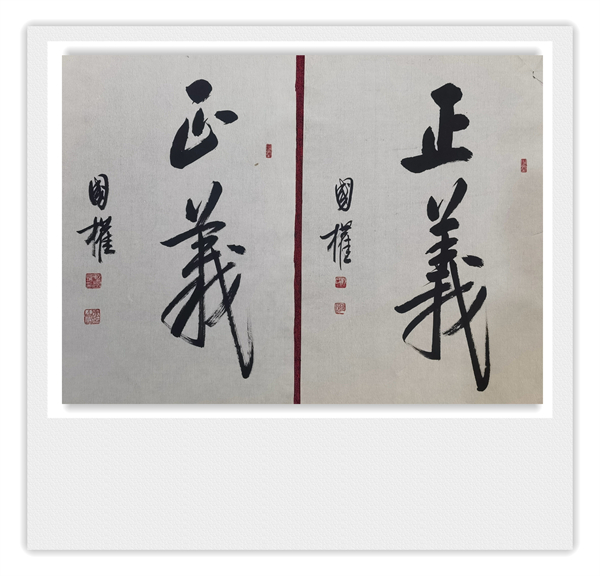 正義
國權
正義
國權